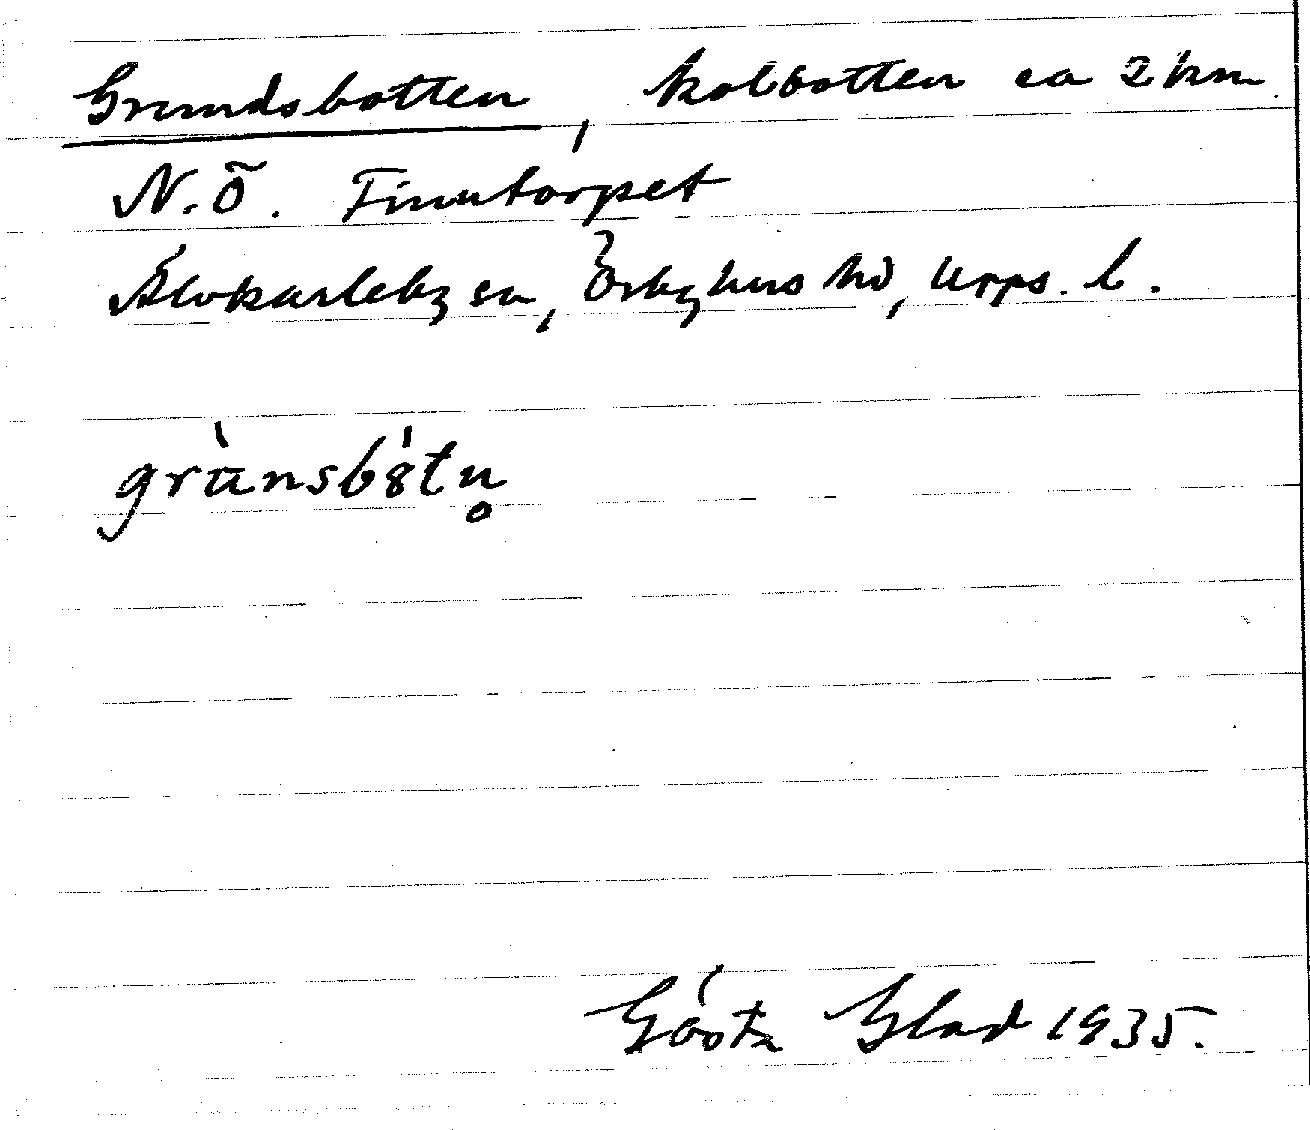 Grundsbotten, kolbotten ca 2 km
N.Ö. Finntorpet
Älvkarleby sn, Örbyhus hd, Upps. l.
grùnsbòtn̥
Gösta Glad 1935.